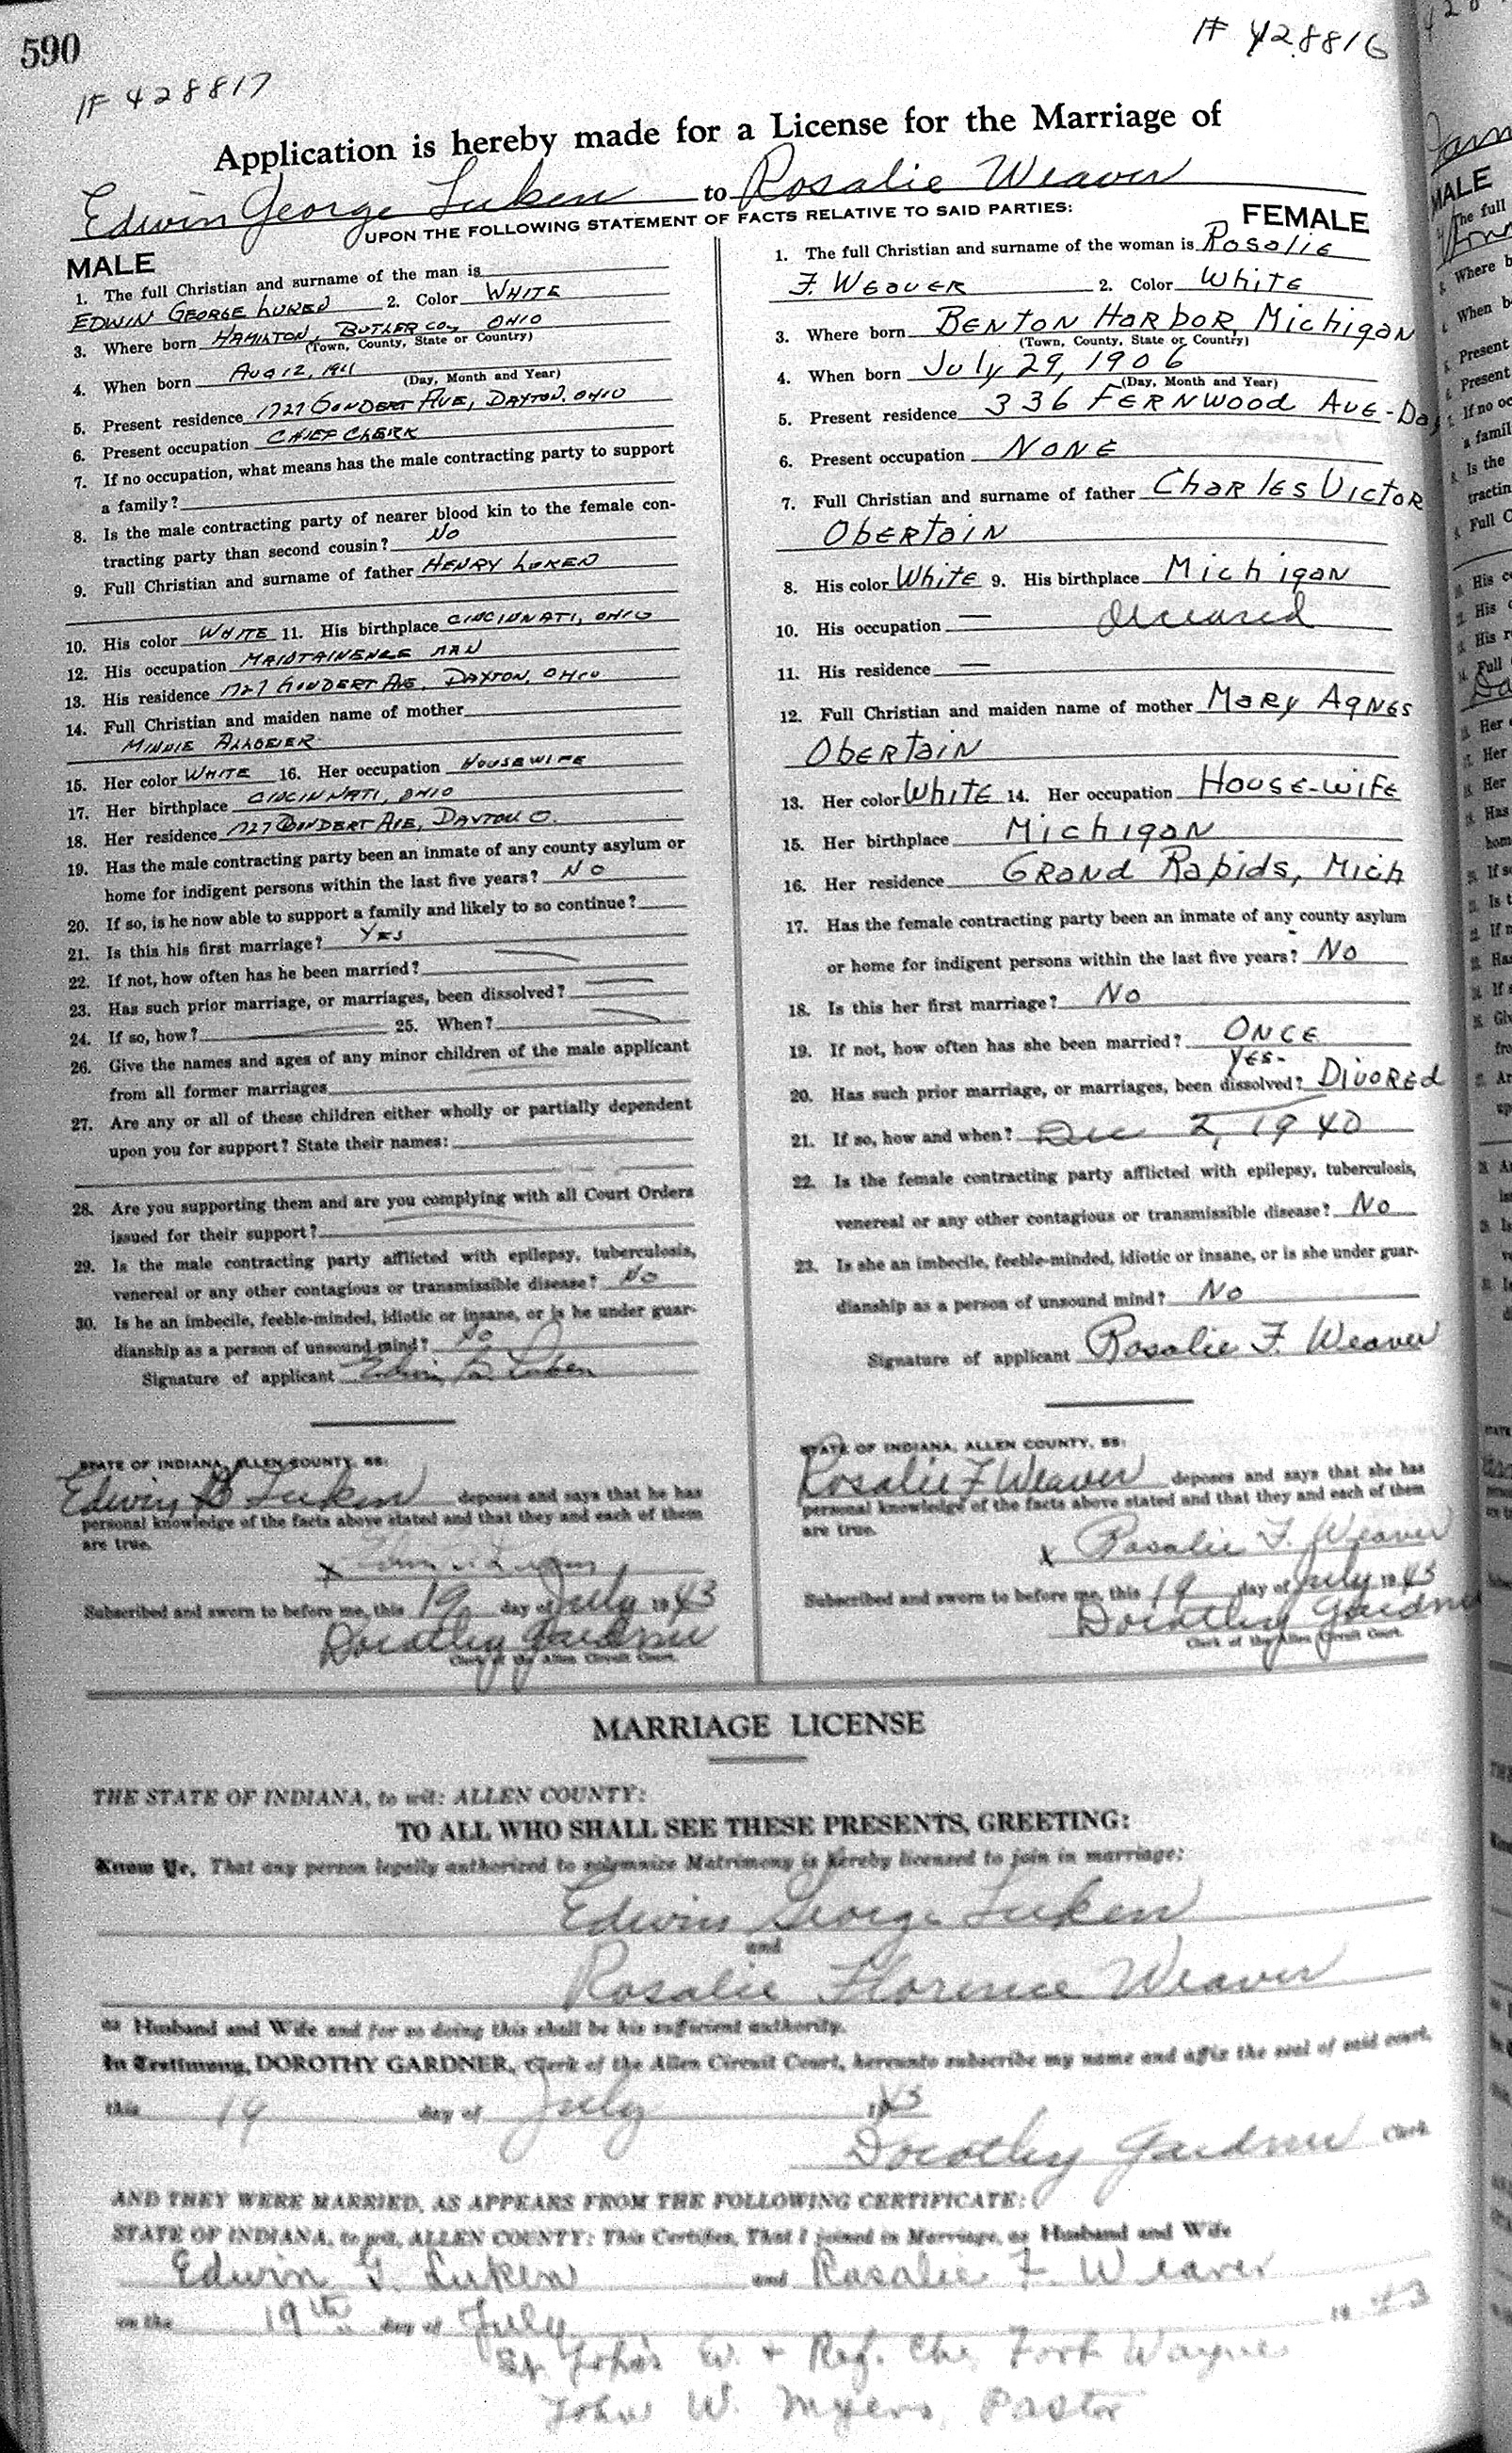 590
# 428816
# 428817
Application is hereby made for a License for the Marriage of
Edwin George Luken to Rosalie Weaver
UPON THE FOLLOWING STATEMENT OF FACTS RELATIVE TO SAID PARTIES:
MALE
1. The full Christian and surname of the man is
EDWIN GEORGE LUKEN 2. Color WHITE
3. Where born HAMILTON, BUTLER CO, OHIO
(Town, County, State or Country)
4. When born AUG 12, 1911
(Day, Month and Year)
5. Present residence 1727 GONDERT AVE, DAYTON, OHIO
6. Present occupation CHIEF CLERK
7. If no occupation, what means has the male contracting party to support
a family?
8. Is the male contracting party of nearer blood kin to the female con-
tracting party than second cousin? No
9. Full Christian and surname of father HENRY LUKEN
10. His color WHITE 11. His birthplace CINCINNATI, OHIO
12. His occupation MAINTAINENCE MAN
13. His residence 1727 GONDERT AVE, DAYTON, OHIO
14. Full Christian and maiden name of mother
MINNIE ALLGEIER
15. Her color WHITE 16. Her occupation HOUSEWIFE
17. Her birthplace CINCINNATI, OHIO
18. Her residence 1727 GONDERT AVE, DAYTON O.
19. Has the male contracting party been an inmate of any county asylum or
home for indigent persons within the last five years? NO
20. If so, is he now able to support a family and likely to so continue?
21. Is this his first marriage? YES
22. If not, how often has he been married?
23. Has such prior marriage, or marriages, been dissolved?
24. If so, how? 25. When?
26. Give the names and ages of any minor children of the male applicant
from all former marriages
27. Are any or all of these children either wholly or partially dependent
upon you for support? State their names:
28. Are you supporting them and are you complying with all Court Orders
issued for their support?
29. Is the male contracting party afflicted with epilepsy, tuberculosis,
venereal or any other contagious or transmissible disease? No
30. Is he an imbecile, feeble-minded, idiotic or insane, or is he under guar-
dianship as a person of unsound mind? No
Signature of applicant Edwin G. Luken
STATE OF INDIANA, ALLEN COUNTY, SS:
Edwin G Luken deposes and says that he has
personal knowledge of the facts above stated and that they and each of them
are true.
x Edwin G. Luken
Subscribed and sworn to before me, this 19 day of July 1943
Dorothy Gardner
Clerk of the Allen Circuit Court.
FEMALE
1. The full Christian and surname of the woman is Rosalie
F. WEAVER 2. Color WHITE
3. Where born BENTON HARBOR, Michigan
(Town, County, State or Country)
4. When born July 29, 1906
(Day, Month and Year)
5. Present residence 336 FERNWOOD AVE - Day
6. Present occupation NONE
7. Full Christian and surname of father CHARLES VICTOR
OBERTAIN
8. His color White 9. His birthplace Michigan
10. His occupation — deceased
11. His residence —
12. Full Christian and maiden name of mother MARY AGNES
OBERTAIN
13. Her color White 14. Her occupation HOUSE-WIFE
15. Her birthplace Michigan
16. Her residence GRAND RAPIDS, MICH
17. Has the female contracting party been an inmate of any county asylum
or home for indigent persons within the last five years? No
18. Is this her first marriage? No
19. If not, how often has she been married? ONCE
YES-
20. Has such prior marriage, or marriages, been dissolved? DIVORED
21. If so, how and when? Dec 2, 1940
22. Is the female contracting party afflicted with epilepsy, tuberculosis,
venereal or any other contagious or transmissible disease? No
23. Is she an imbecile, feeble-minded, idiotic or insane, or is she under guar-
dianship as a person of unsound mind? No
Signature of applicant Rosalie F. Weaver
STATE OF INDIANA, ALLEN COUNTY, SS:
Rosalie F Weaver deposes and says that she has
personal knowledge of the facts above stated and that they and each of them
are true.
x Rosalie F. Weaver
Subscribed and sworn to before me, this 19 day of July 1943
Dorothy Gardner
Clerk of the Allen Circuit Court.
MARRIAGE LICENSE
THE STATE OF INDIANA, to wit: ALLEN COUNTY:
TO ALL WHO SHALL SEE THESE PRESENTS, GREETING:
Know Ye, That any person legally authorized to solemnize Matrimony is hereby licensed to join in marriage:
Edwin George Luken
and
Rosalie Florence Weaver
as Husband and Wife and for so doing this shall be his sufficient authority.
In Testimony, DOROTHY GARDNER, Clerk of the Allen Circuit Court, hereunto subscribe my name and affix the seal of said court,
this 19 day of July 1943
Dorothy Gardner Clerk
AND THEY WERE MARRIED, AS APPEARS FROM THE FOLLOWING CERTIFICATE:
STATE OF INDIANA, to wit, ALLEN COUNTY: This Certifies, That I joined in Marriage, as Husband and Wife
Edwin G. Luken and Rosalie F. Weaver
on the 19th day of July 1943
St. John's E. + Ref. Ch. Fort Wayne
John W. Myers, Pastor